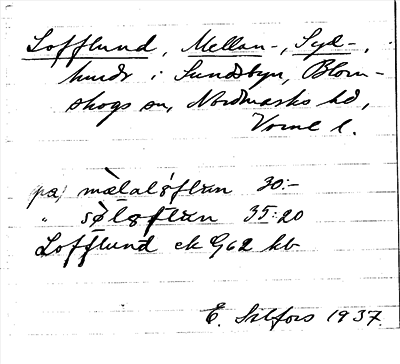 Lofflund, Mellan-, Syd-,
hmdr i Sundsbyn, Blom-
skogs sn, Nordmarks hd,
Värml l.
på, mèlaløflun 30:-
" sø̀løflun 35:20
Lofflund ek G62 kb
E. Salfors 1937.